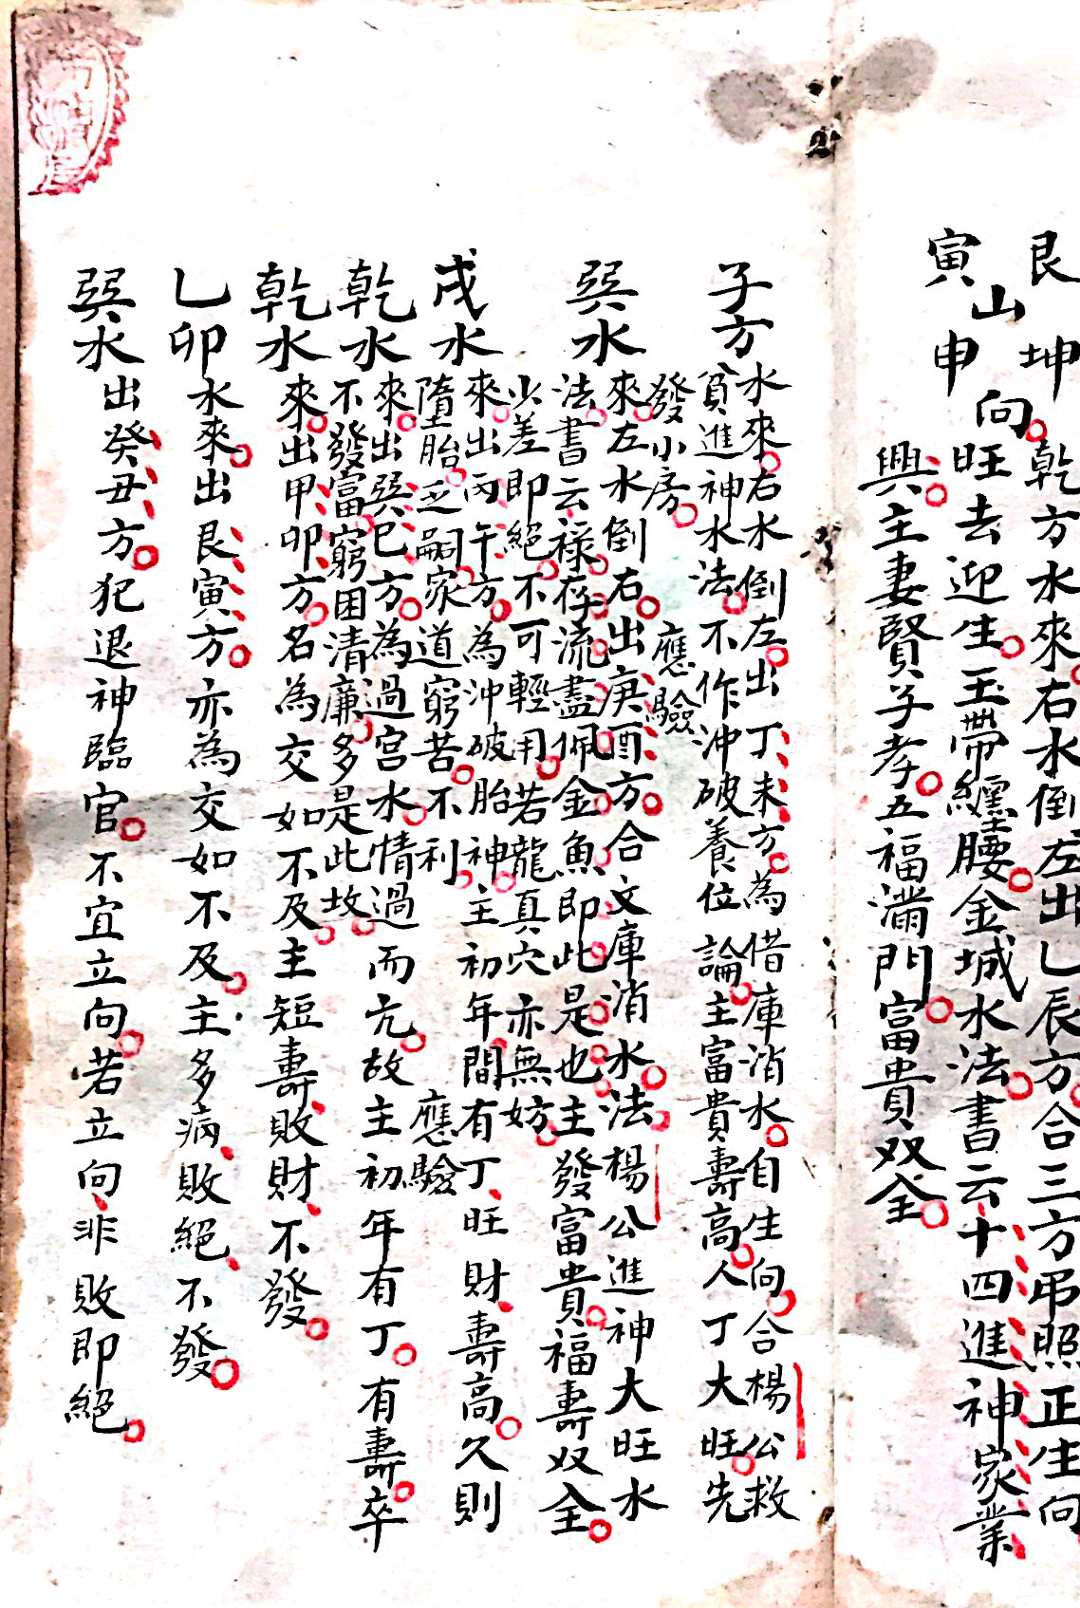 艮寅山坤申向
乾方水來右水倒左出乙辰方合三方弔照正生向
旺去迎生玉帶纏腰金城水法書云十四進神家業
興主妻賢子孝五福滿門富貴双全
子方水來右水倒左出丁未方為借庫消水自生向合楊公救
貧進神水法不作沖破養位論主富貴壽高人丁大旺先
發小房 應驗
巽水來左水倒右出庚酉方合文庫消水法楊公進神大旺水
法書云祿存流盡佩金魚即此是也主發富貴福壽双全
少差即絕不可輕用若龍真穴亦無妨
戌水來出丙午方為沖破胎神主初年間有丁旺財壽高久則
墮胎乏嗣家道窮苦不利 應驗
乾水來出巽巳方為過宮水情過而亢故主初年有丁有壽卒
不發富窮困清廉多是此故
乾水來出甲卯方名為交如不及主短壽敗財不發
乙卯水來出艮寅方亦為交如不及主多病敗絕不發
巽水出癸丑方犯退神臨官不宜立向若立向非敗即絕